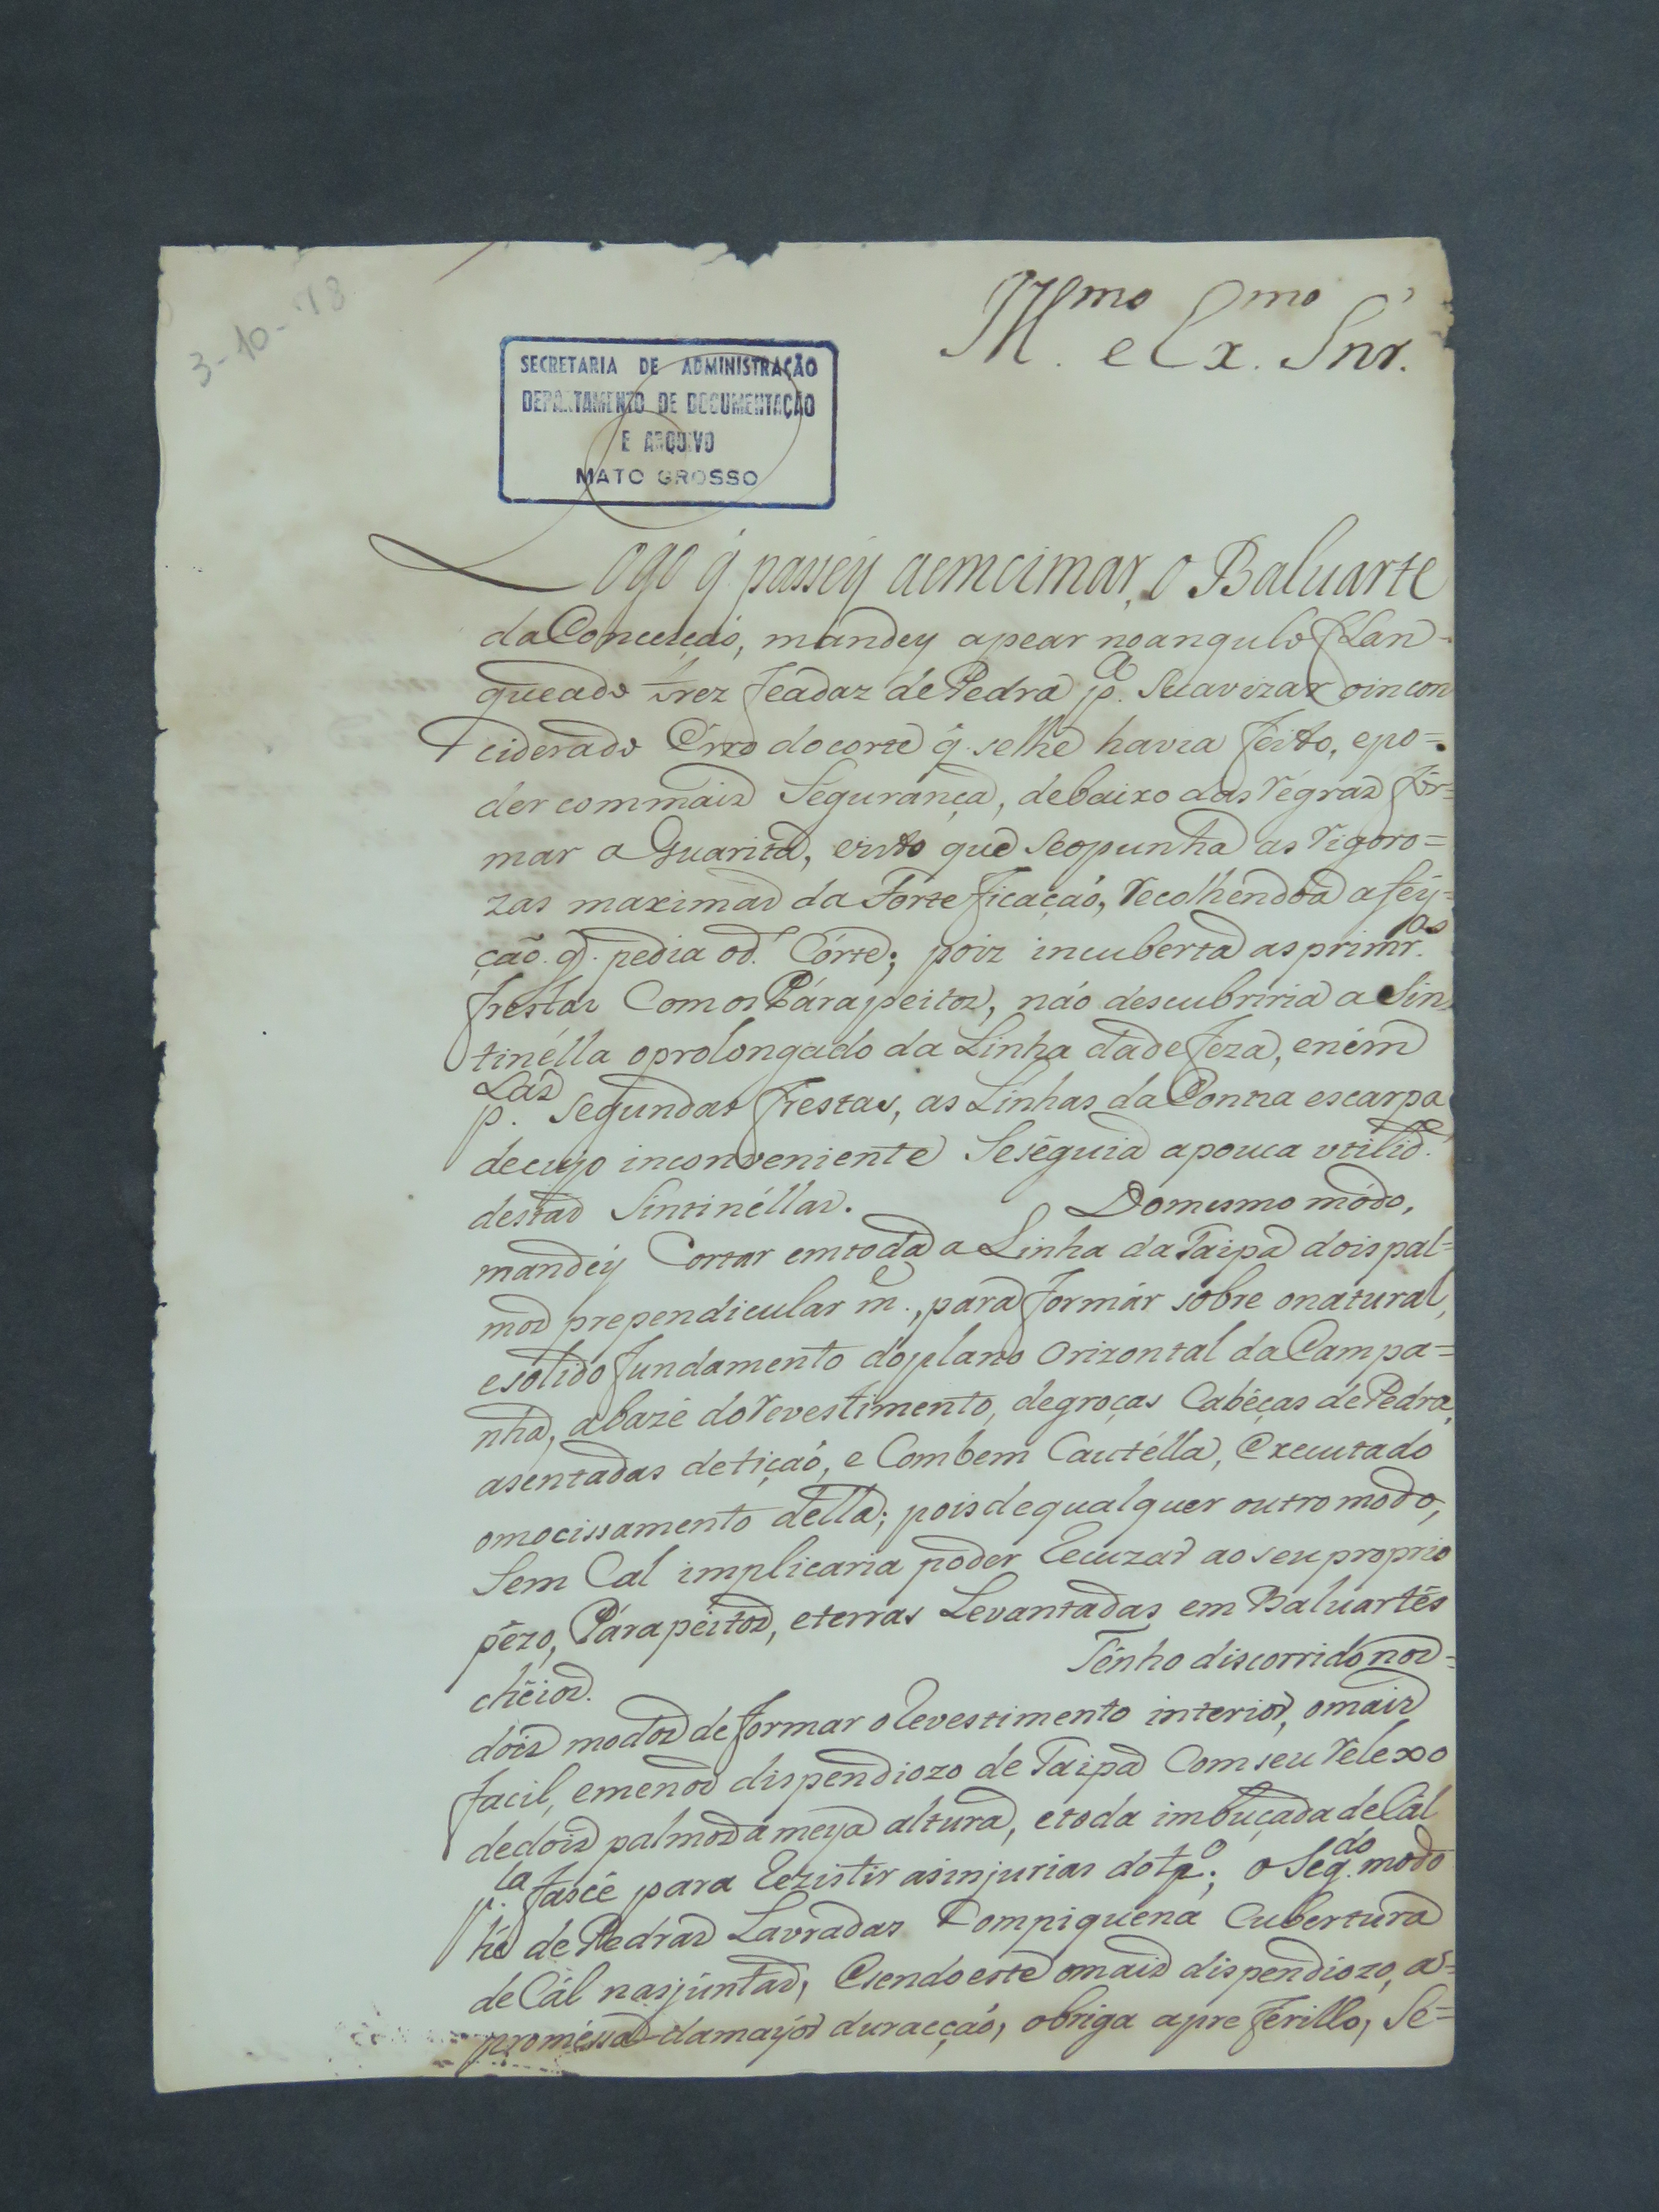 3-10-78
Ill.mo e Ex.mo Snr.
SECRETARIA DE ADMINISTRAÇÃO
DEPARTAMENTO DE DOCUMENTAÇÃO
E ARQUIVO
MATO GROSSO
Logo q̃ passey aemcimar, o Baluarte
da Conceicáo, mandey apear no angulo flan-
queado trez feadaz de Pedra p.a Suavizar o incon
ciderado Érro do corte q̃ se lhe havia feito, e po=
der com mais Segurança, debaixo das régras for=
mar a Guarita, e isto que se opunha as rigoro=
zas maximas da Forteficaçaó, recolhendoa a fey=
ção q̃. pedia o d.o Córte; poiz incuberta as primr.as
frestas Com os Párapeitos, náo descubriria a Sin
tinélla o prolongado da Linha dadefeza, e ném
p.Las segundas frestas, as Linhas da Contra escarpa
de cujo inconveniente Se seguia a pouca utilid.e
destas Sintinéllas. Do mesmo módo,
mandéy Cortar em toda a Linha da Taipa dois pal=
mos prependicular m.e, para formár sobre o natural,
e solido fundamento do plano Orizontal da Campa=
nha, a baze do revestimento, de groças Cabéças de Pedra,
asentadas de tiçaó, e Com bem Cautélla, Executado
o mocissamento della; pois de qualquer outro modo,
Sem Cal implicaria poder recuzar ao seu proprio
pêzo, Párapéitos, e terras Levantadas em Baluartês
chêios. Tênho discorrido nos=
dois modos de formar o revestimento interior, o mais
facil, e menos dispendiozo de Taipa Com seu relexo
de dois palmos a meya altura, e toda imbuçada dé Cál
p.la fasce para rezistir as injurias do tp.o; o Seg.do modo
hé de Pedras Lavradas Com piquena Cubertura
de Cál nas juntas, E sendo este o mais dispendiozo, a=
proméssa da mayor duracçaó, obriga a preferillo, Se=